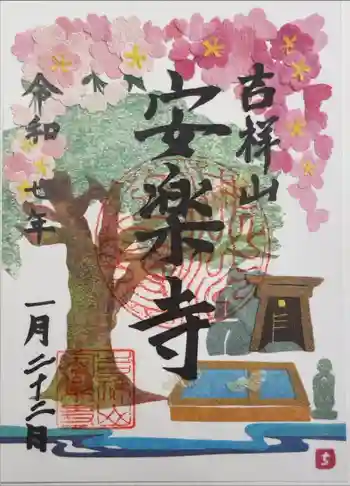 吉祥山
安楽寺
令和七年
一月二十二日
ち